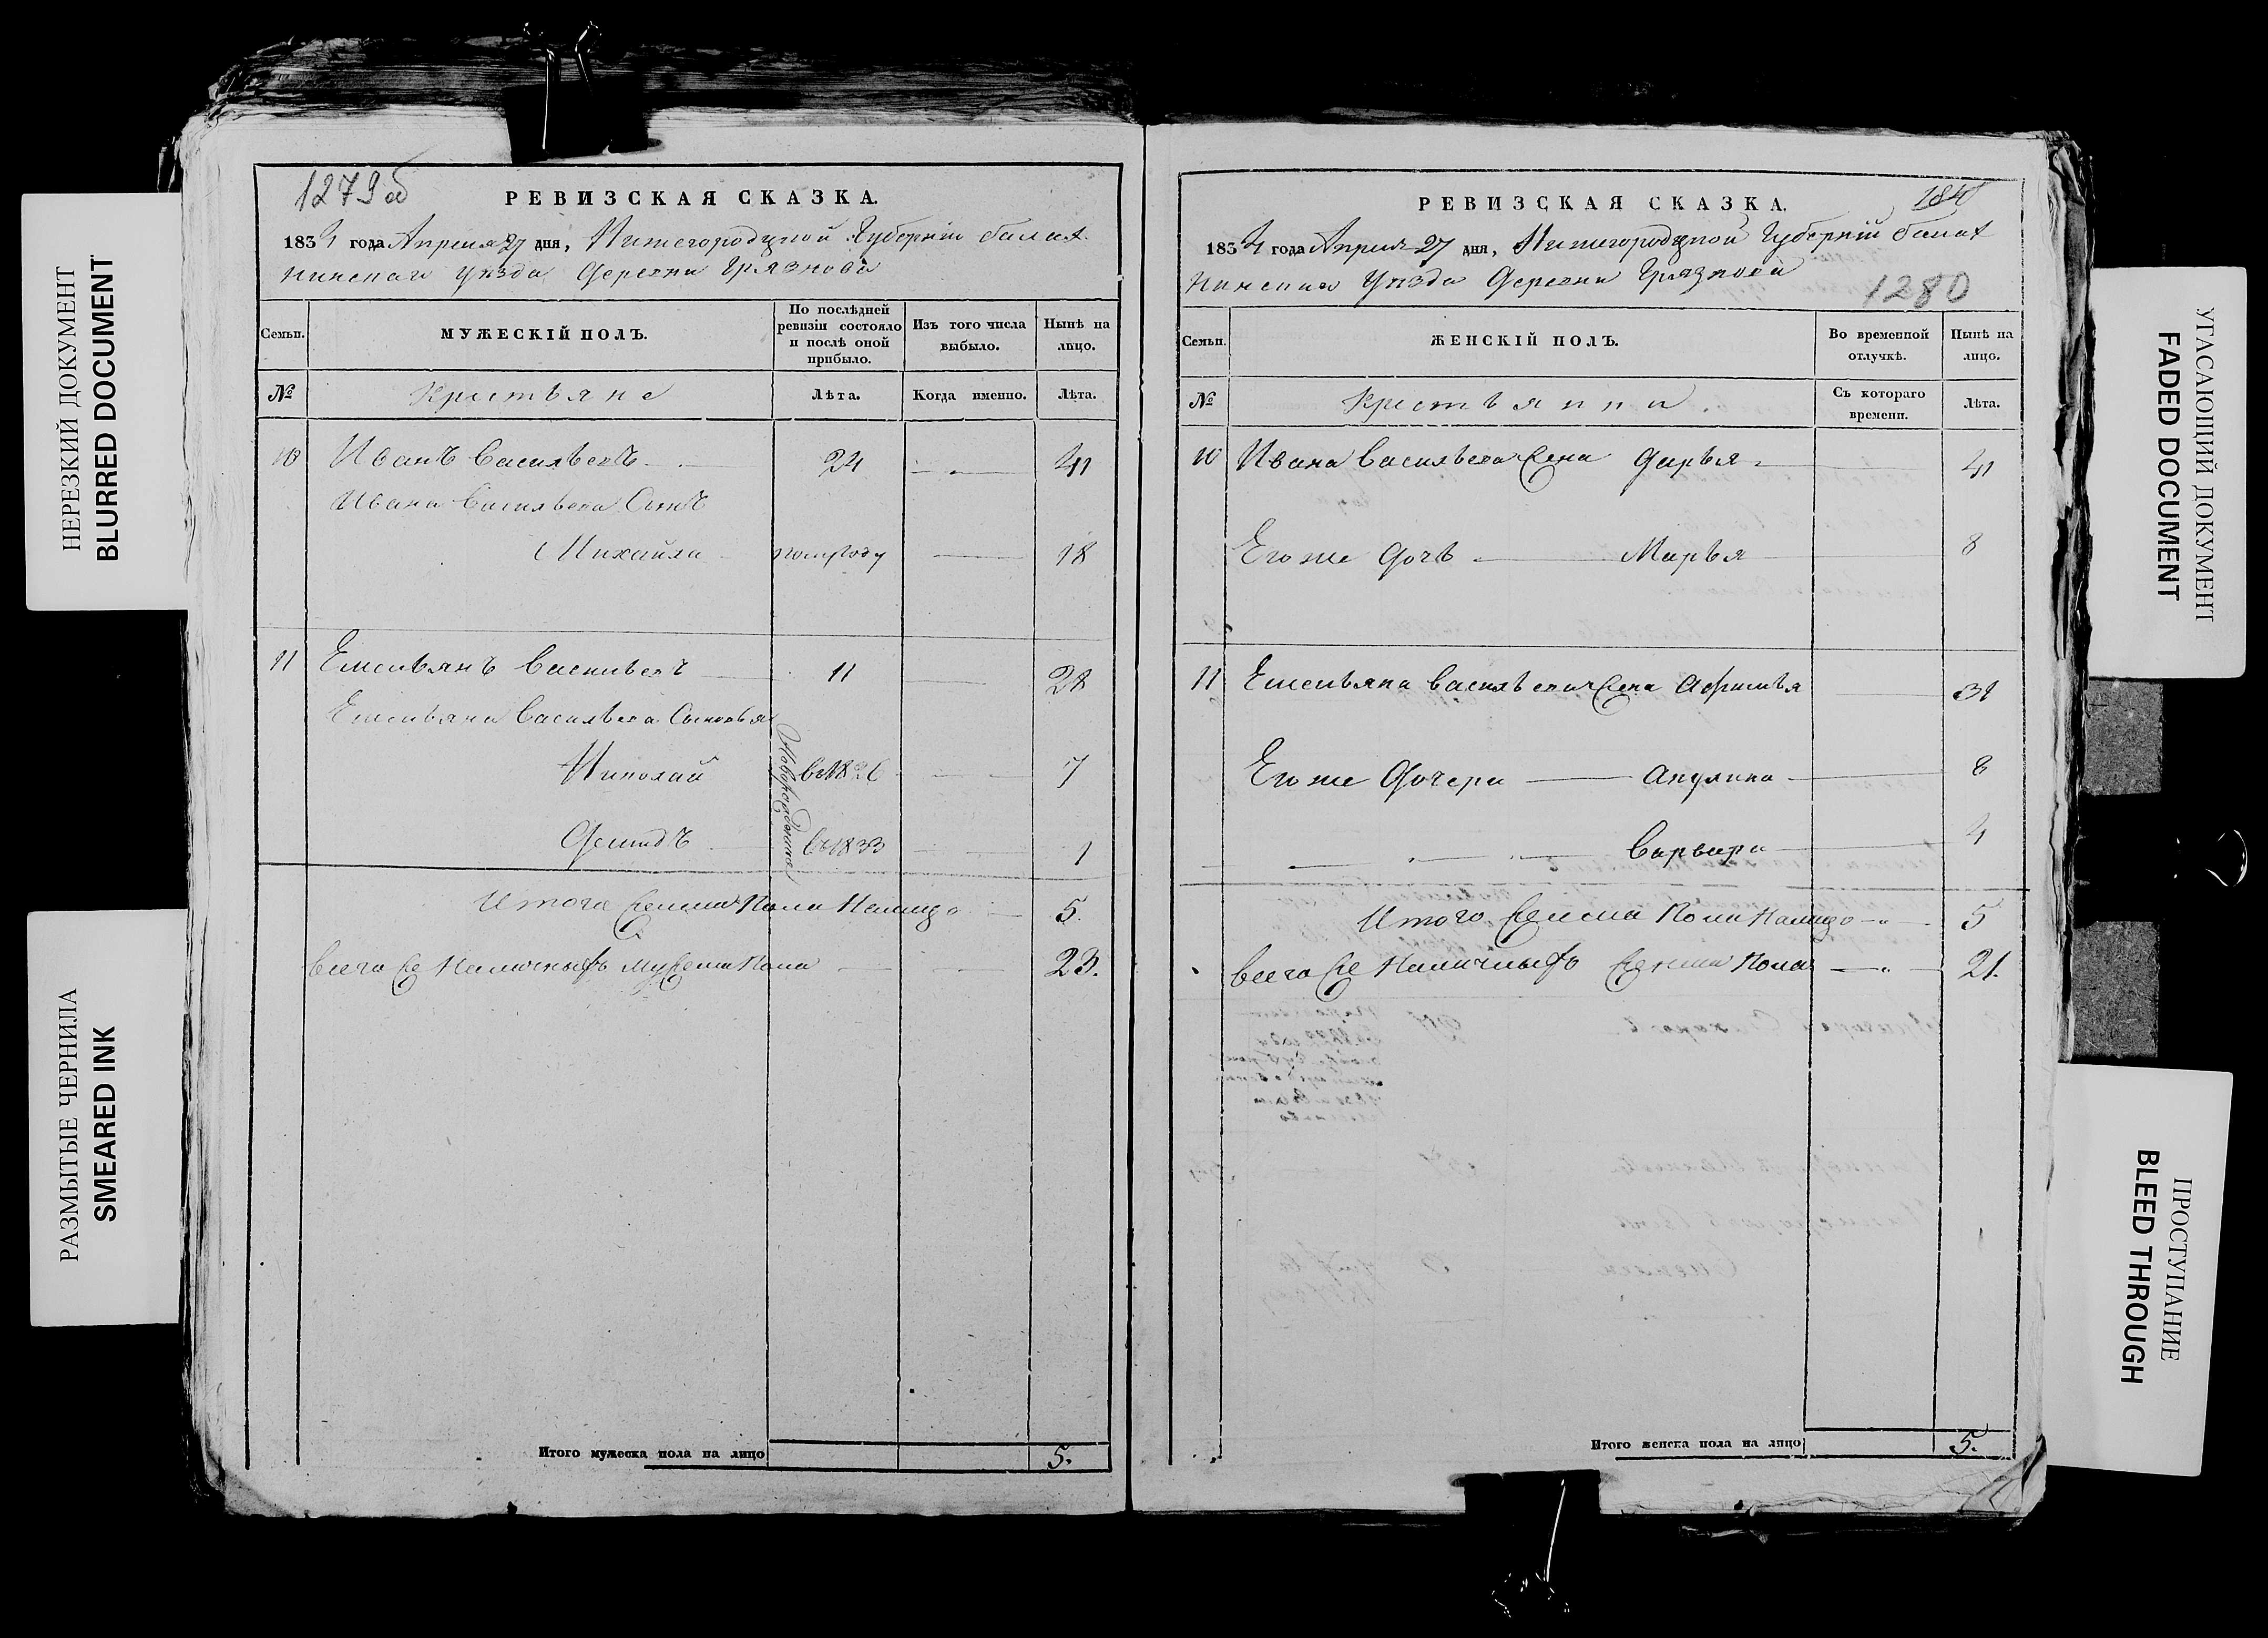 НЕРЕЗКИЙ ДОКУМЕНТ
BLURRED DOCUMENT
РАЗМЫТЫЕ ЧЕРНИЛА
SMEARED INK
1279об
РЕВИЗСКАЯ СКАЗКА.
1834 года Апреля 27 дня, Нижегородской Губернии Балах-
нинскаго уезда Деревни Грязнова
Семьи.
МУЖЕСКІЙ ПОЛЪ.
По послѣдней ревизіи состояло и послѣ оной прибыло.
Изъ того числа выбыло.
Нынѣ на лицо.
№
Крестьяне
Лѣта.
Когда именно.
Лѣта.
10 Иванъ Васильевъ 24 41
Ивана Васильева Сынъ
Михайла полугоду 18
11 Емельянъ Васильевъ 11 28
Емельяна Васильева Сыновья
Николай въ 1826 7
Новорожденные
Демидъ въ 1833 1
Итого Пола Налицо 5.
Всего Наличныхъ Пола 23.
Итого мужеска пола на лицо 5.
РЕВИЗСКАЯ СКАЗКА.
1834 года Апреля 27 дня, Нижегородской Губерніи Балах
нинскаго Уезда Деревни Грязнова
1280
Семьи.
ЖЕНСКІЙ ПОЛЪ.
Во временной отлучкѣ.
Нынѣ на лицо.
№
Крестьянки
Съ котораго времени.
Лѣта.
10 Ивана Васильева Жена Дарья 41
Егоже Дочь Марья 8
11 Емельяна Васильева Жена Афимья
Егоже Дочери Акулина 8
Варвара 4
Итого Женска Пола Налицо 5
Всего же Наличныхъ Женска Пола 21.
Итого женска пола на лицо 5.
УГАСАЮЩИЙ ДОКУМЕНТ
FADED DOCUMENT
ПРОСТУПАНИЕ
BLEED THROUGH